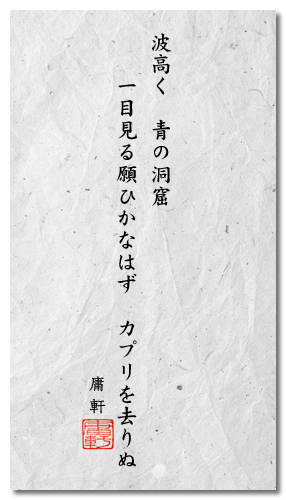 波高く　青の洞窟
一目見る願ひかなはず　カプリを去りぬ
庸軒
庸軒